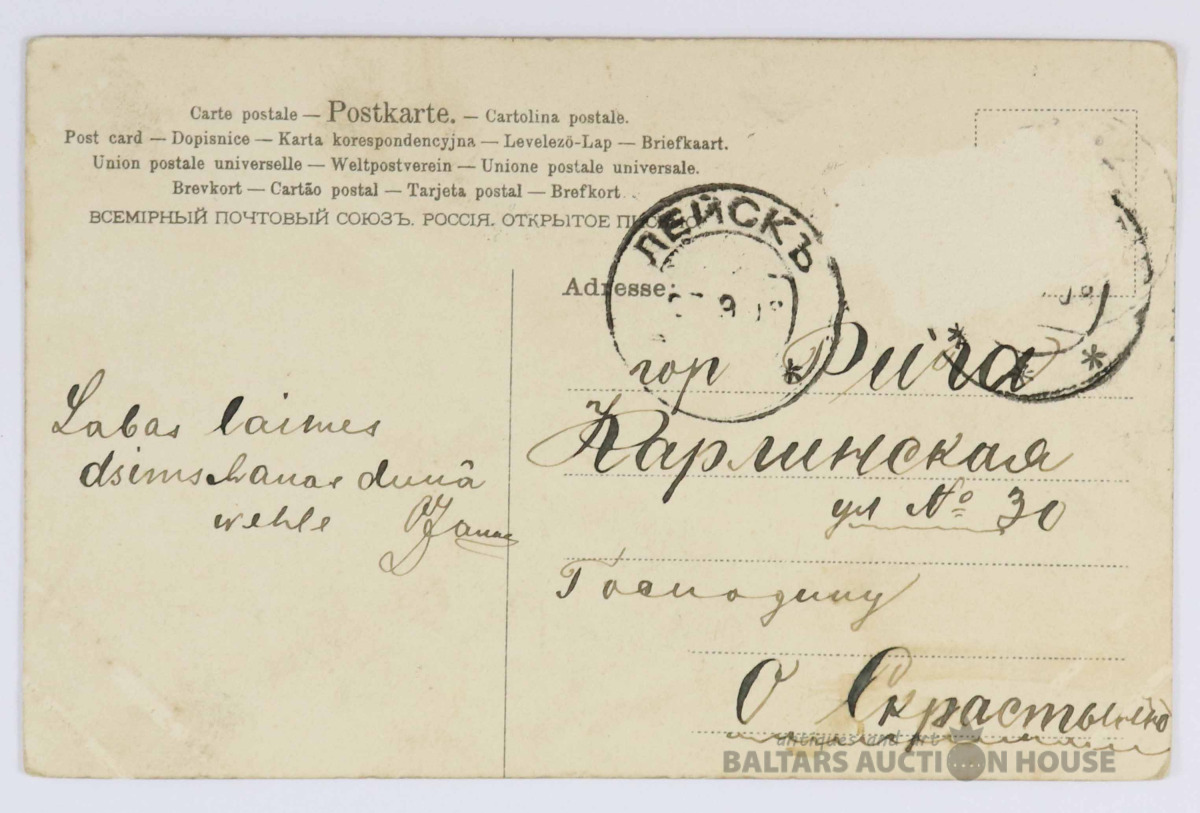 Carte postale — Postkarte. — Cartolina postale.
Post card — Dopisnice — Karta korespondencyjna — Levelezö-Lap — Briefkaart.
Union postale universelle — Weltpostverein — Unione postale universale.
Brevkort — Cartão postal — Tarjeta postal — Brefkort
ВСЕМІРНЫЙ ПОЧТОВЫЙ СОЮЗЪ. РОССІЯ. ОТКРЫТОЕ
ЛЕЙСКЪ
Adresse:
гор Рига
Карлинская
ул № 30
Господину
О Скрастыню
Labas laimes
dsimschanas deenâ
wehle
antiques and art
BALTARS AUCTION HOUSE